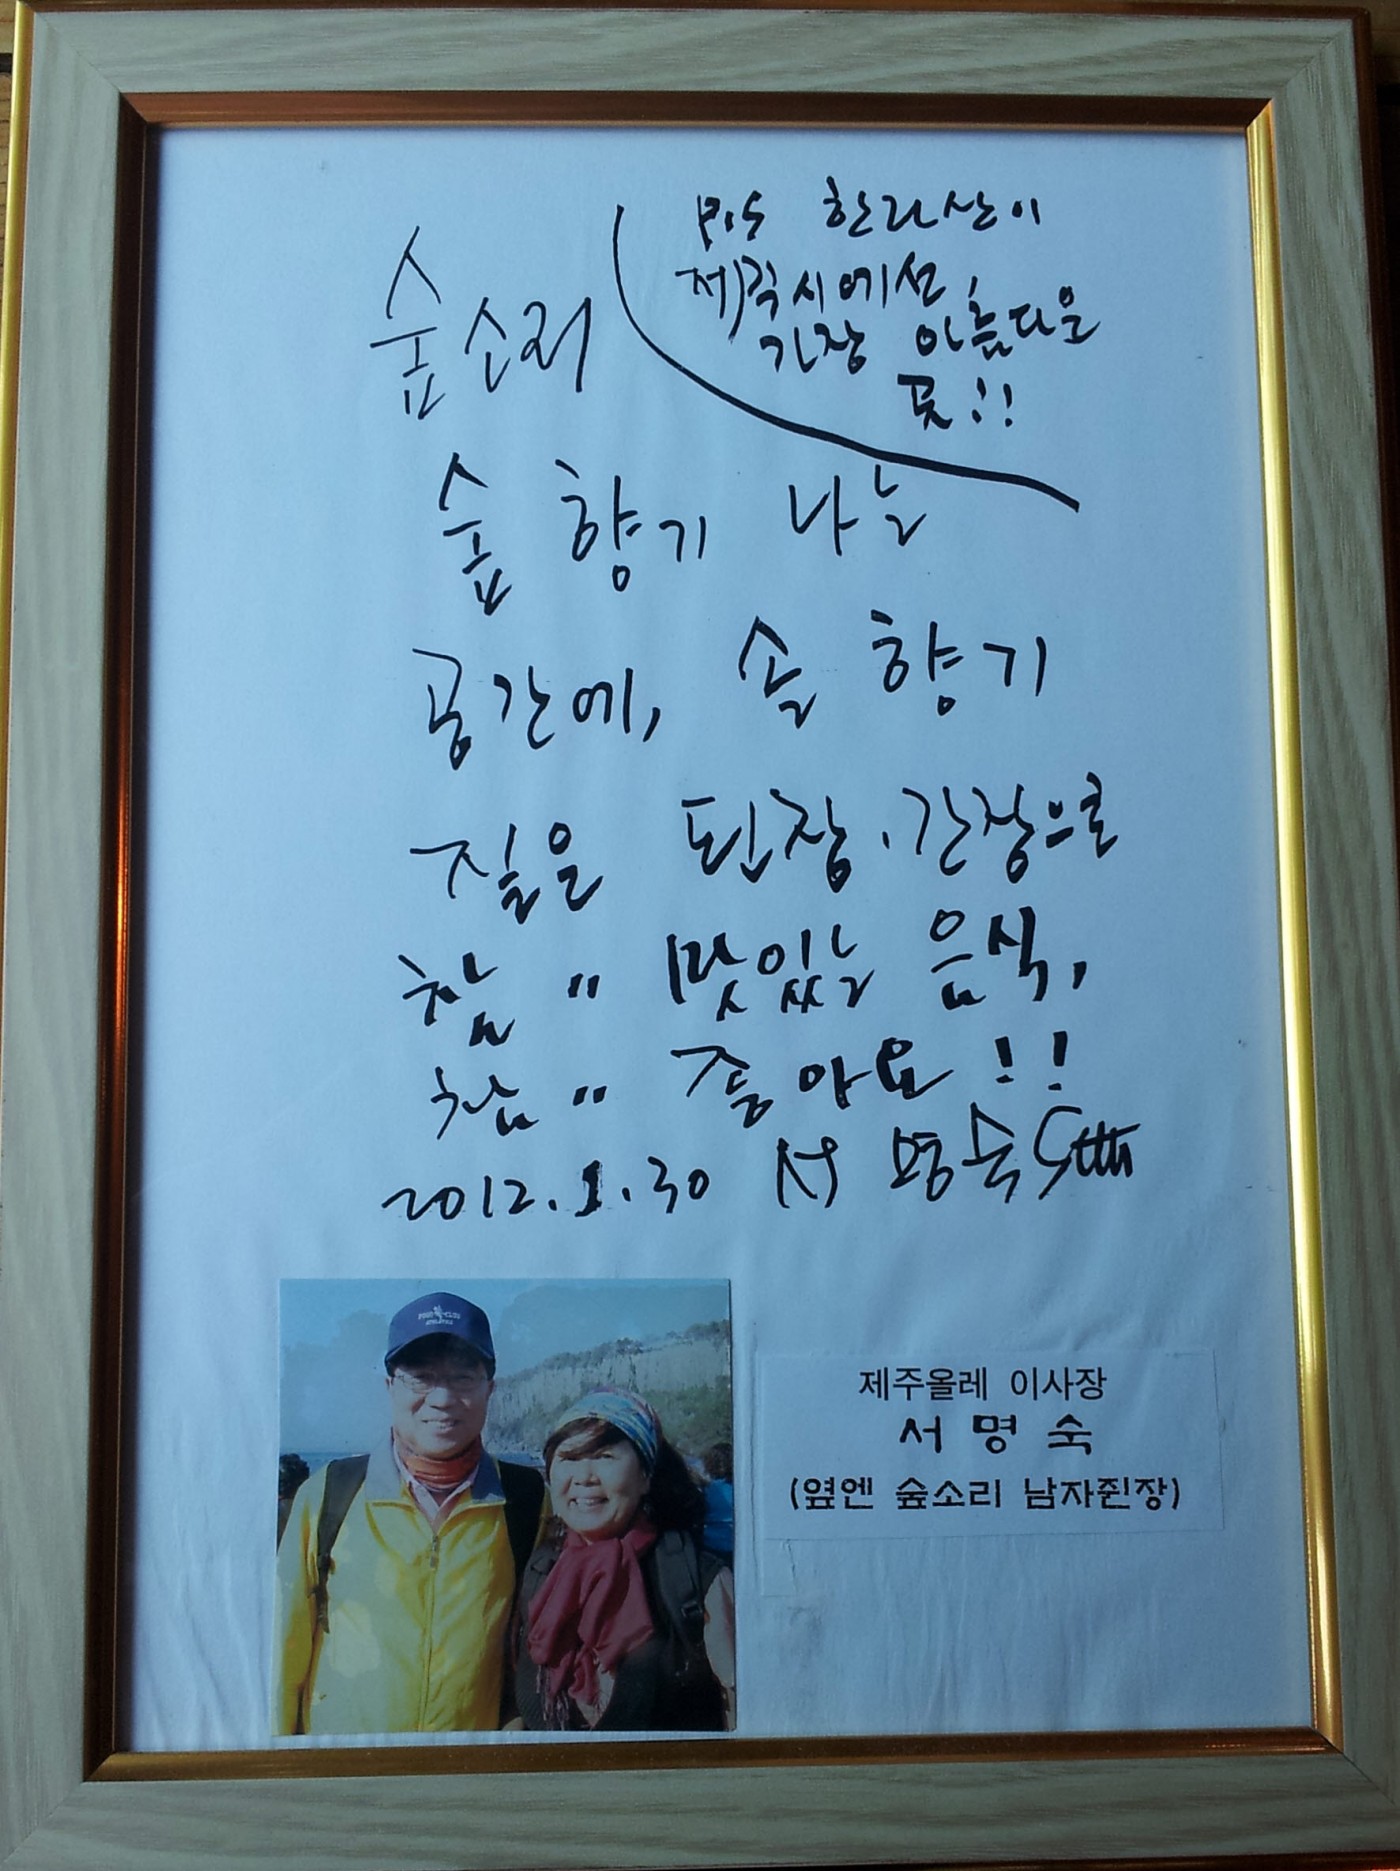 숲소리
숲 향기 나는
공간에, 솔 향기
짙은 된장·간장으로
참〃 맛있는 음식,
참〃 좋아요!!
2012.1.30 서명숙
P.S 한라산이
제주시에선
가장 아름다운
곳!!
제주올레 이사장
서 명 숙
(옆엔 숲소리 남자쥔장)